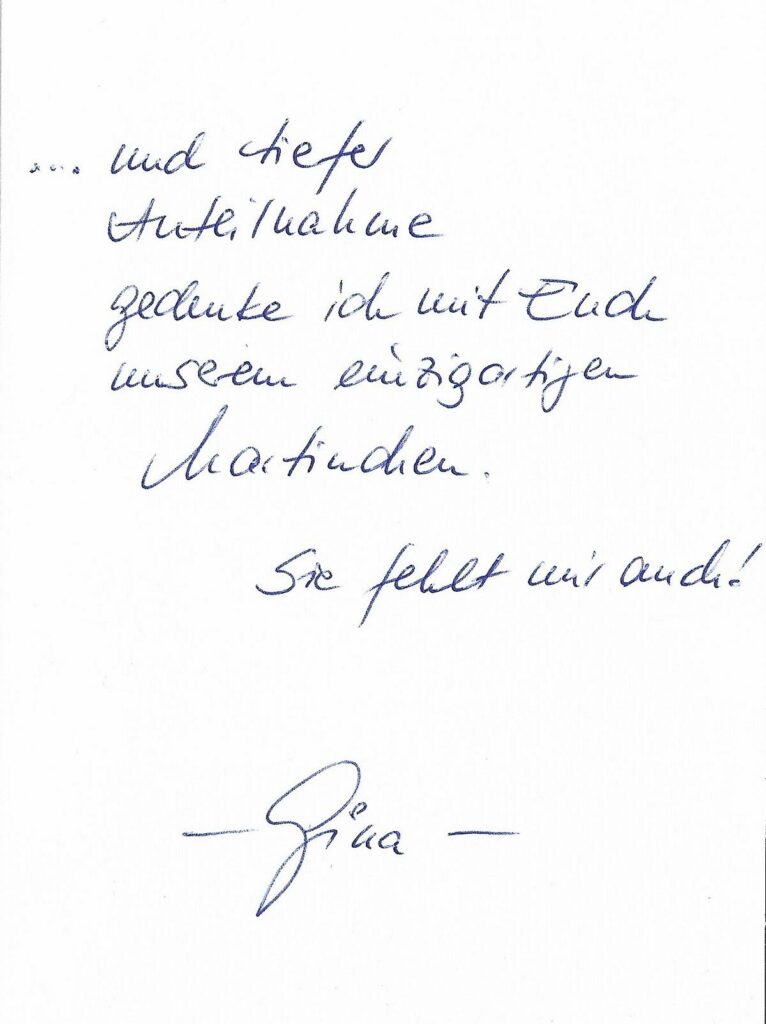 .... und tiefer
Anteilnahme
gedenke ich mit Euch
unserem einzigartigen
Martinchen.
Sie fehlt mir auch!
– Gina –